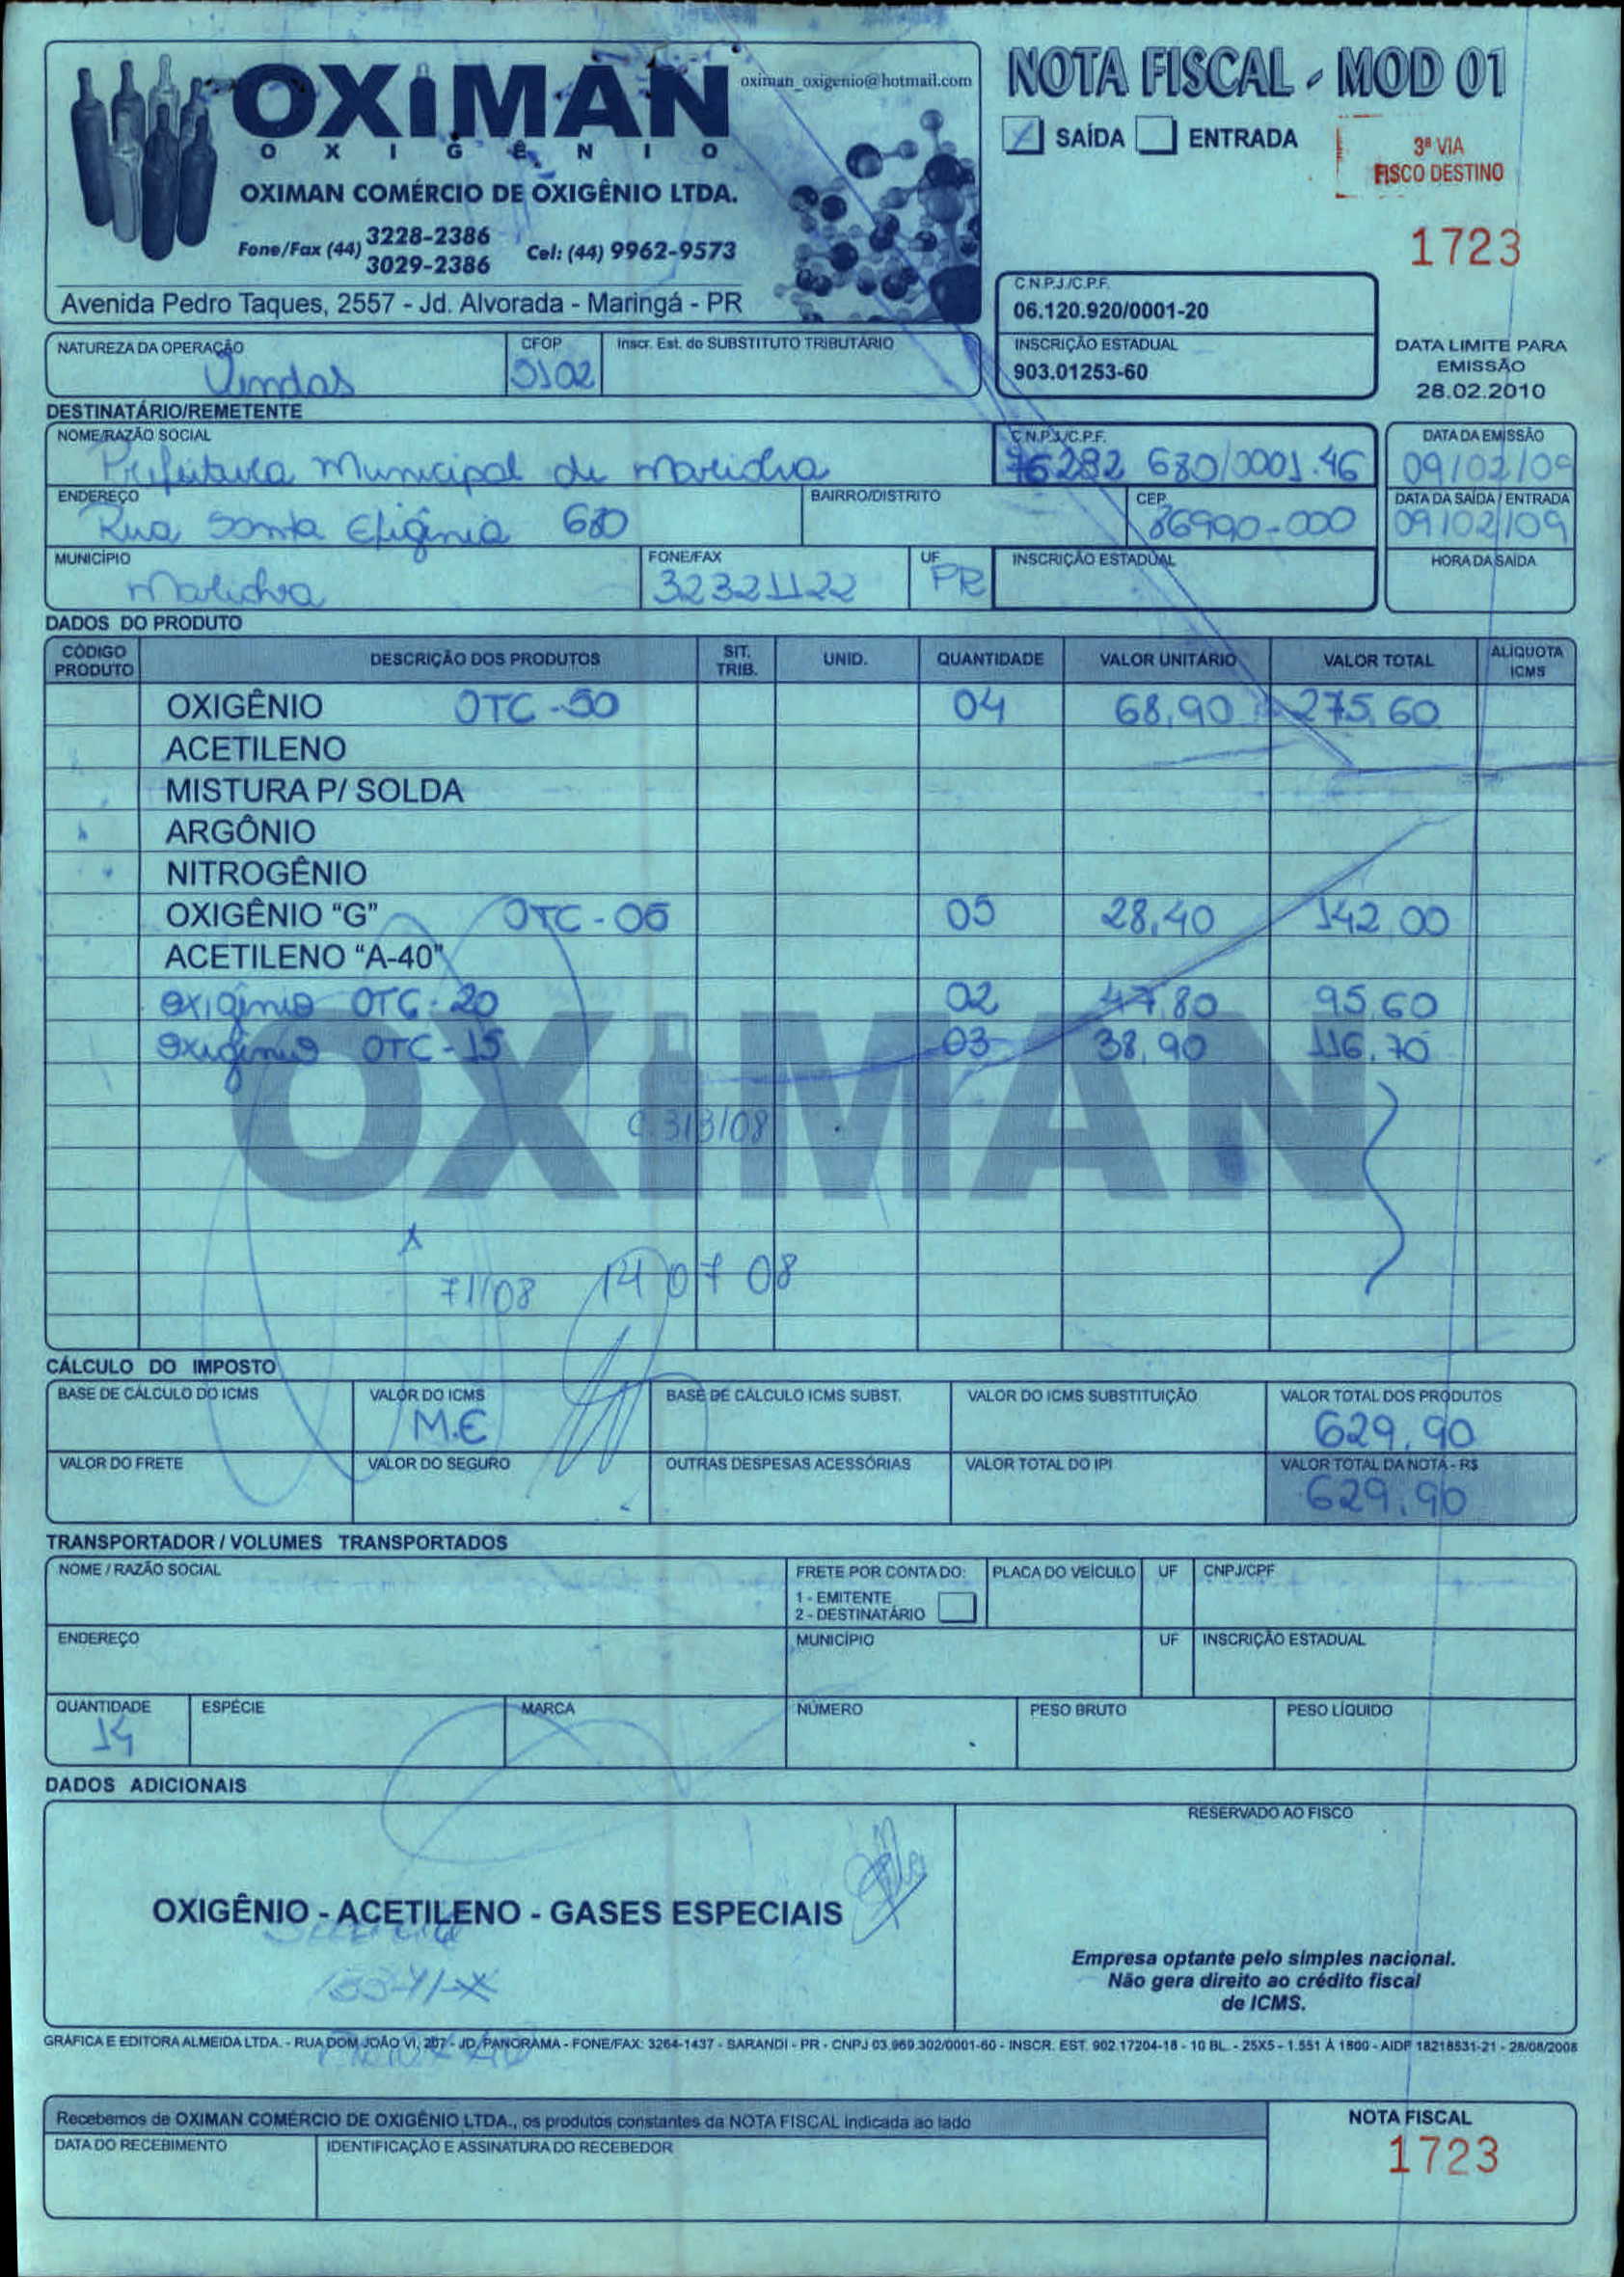 OXIMAN
OXIGÊNIO
oximan_oxigenio@hotmail.com
OXIMAN COMÉRCIO DE OXIGÊNIO LTDA.
Fone/Fax (44) 3228-2386
3029-2386
Cel: (44) 9962-9573
Avenida Pedro Taques, 2557 - Jd. Alvorada - Maringá - PR
NOTA FISCAL - MOD 01
SAÍDA ENTRADA
3ª VIA
FISCO DESTINO
1723
C.N.P.J./C.P.F.
06.120.920/0001-20
INSCRIÇÃO ESTADUAL
903.01253-60
DATA LIMITE PARA
EMISSÃO
28.02.2010
NATUREZA DA OPERAÇÃO CFOP Inscr. Est. do SUBSTITUTO TRIBUTÁRIO
Vendas 5102
DESTINATÁRIO/REMETENTE
NOME/RAZÃO SOCIAL C.N.P.J./C.P.F. DATA DA EMISSÃO
Prefeitura Municipal de Marialva 76282 680/0001.46 09/02/09
ENDEREÇO BAIRRO/DISTRITO CEP DATA DA SAÍDA / ENTRADA
Rua Santa Efigênia 680 86990-000 09/02/09
MUNICÍPIO FONE/FAX UF INSCRIÇÃO ESTADUAL HORA DA SAÍDA
Marialva 32321122 PR
DADOS DO PRODUTO
CÓDIGO PRODUTO DESCRIÇÃO DOS PRODUTOS SIT. TRIB. UNID. QUANTIDADE VALOR UNITÁRIO VALOR TOTAL ALÍQUOTA ICMS
OXIGÊNIO OTC-50 04 68,90 275,60
ACETILENO
MISTURA P/ SOLDA
ARGÔNIO
NITROGÊNIO
OXIGÊNIO "G" OTC-05 05 28,40 142,00
ACETILENO "A-40"
oxigênio OTC-20 02 47,80 95,60
oxigênio OTC-15 03 38,90 116,70
OXIMAN
C.313/08
71/08 14 07 08
CÁLCULO DO IMPOSTO
BASE DE CÁLCULO DO ICMS VALOR DO ICMS BASE DE CÁLCULO ICMS SUBST. VALOR DO ICMS SUBSTITUIÇÃO VALOR TOTAL DOS PRODUTOS
M.E 629,90
VALOR DO FRETE VALOR DO SEGURO OUTRAS DESPESAS ACESSÓRIAS VALOR TOTAL DO IPI VALOR TOTAL DA NOTA - R$
629,90
TRANSPORTADOR / VOLUMES TRANSPORTADOS
NOME / RAZÃO SOCIAL FRETE POR CONTA DO: PLACA DO VEÍCULO UF CNPJ/CPF
1 - EMITENTE
2 - DESTINATÁRIO
ENDEREÇO MUNICÍPIO UF INSCRIÇÃO ESTADUAL
QUANTIDADE ESPÉCIE MARCA NÚMERO PESO BRUTO PESO LÍQUIDO
14
DADOS ADICIONAIS
RESERVADO AO FISCO
OXIGÊNIO - ACETILENO - GASES ESPECIAIS
Empresa optante pelo simples nacional.
Não gera direito ao crédito fiscal
de ICMS.
GRÁFICA E EDITORA ALMEIDA LTDA. - RUA DOM JOÃO VI, 207 - JD. PANORAMA - FONE/FAX: 3264-1437 - SARANDI - PR - CNPJ 03.969.302/0001-60 - INSCR. EST. 902.17204-18 - 10 BL. - 25X5 - 1.551 À 1800 - AIDF 18218531-21 - 28/08/2008
Recebemos de OXIMAN COMÉRCIO DE OXIGÊNIO LTDA., os produtos constantes da NOTA FISCAL indicada ao lado
NOTA FISCAL
1723
DATA DO RECEBIMENTO IDENTIFICAÇÃO E ASSINATURA DO RECEBEDOR